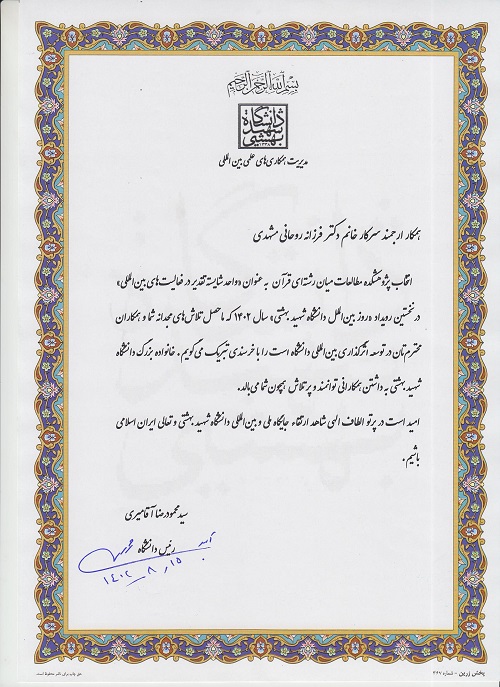 بسم الله الرحمن الرحیم
دانشگاه
شهید
بهشتی
۱۳۳۸
مدیریت همکاری‌های علمی بین المللی
همکار ارجمند سرکار خانم دکتر فرزانه روحانی مشهدی
انتخاب پژوهشکده مطالعات میان رشته‌ای قرآن به عنوان «واحد شایسته تقدیر در فعالیت‌های بین‌المللی»
در نخستین رویداد «روز بین‌الملل دانشگاه شهید بهشتی» سال ۱۴۰۲ که ماحصل تلاش‌های مجدانه شما و همکاران
محترم‌تان در توسعه اثرگذاری بین‌المللی دانشگاه است را با خرسندی تبریک می‌گویم. خانواده بزرگ دانشگاه
شهید بهشتی به داشتن همکارانی توانمند و پرتلاش همچون شما می‌بالد.
امید است در پرتو الطاف الهی شاهد ارتقاء جایگاه ملی و بین‌المللی دانشگاه شهید بهشتی و تعالی ایران اسلامی
باشیم.
سید محمودرضا آقامیری
رئیس دانشگاه
۱۴۰۲٫۸٫۱۵
پخش زرین - شماره ۳۶۷
حق چاپ برای ناشر محفوظ است.